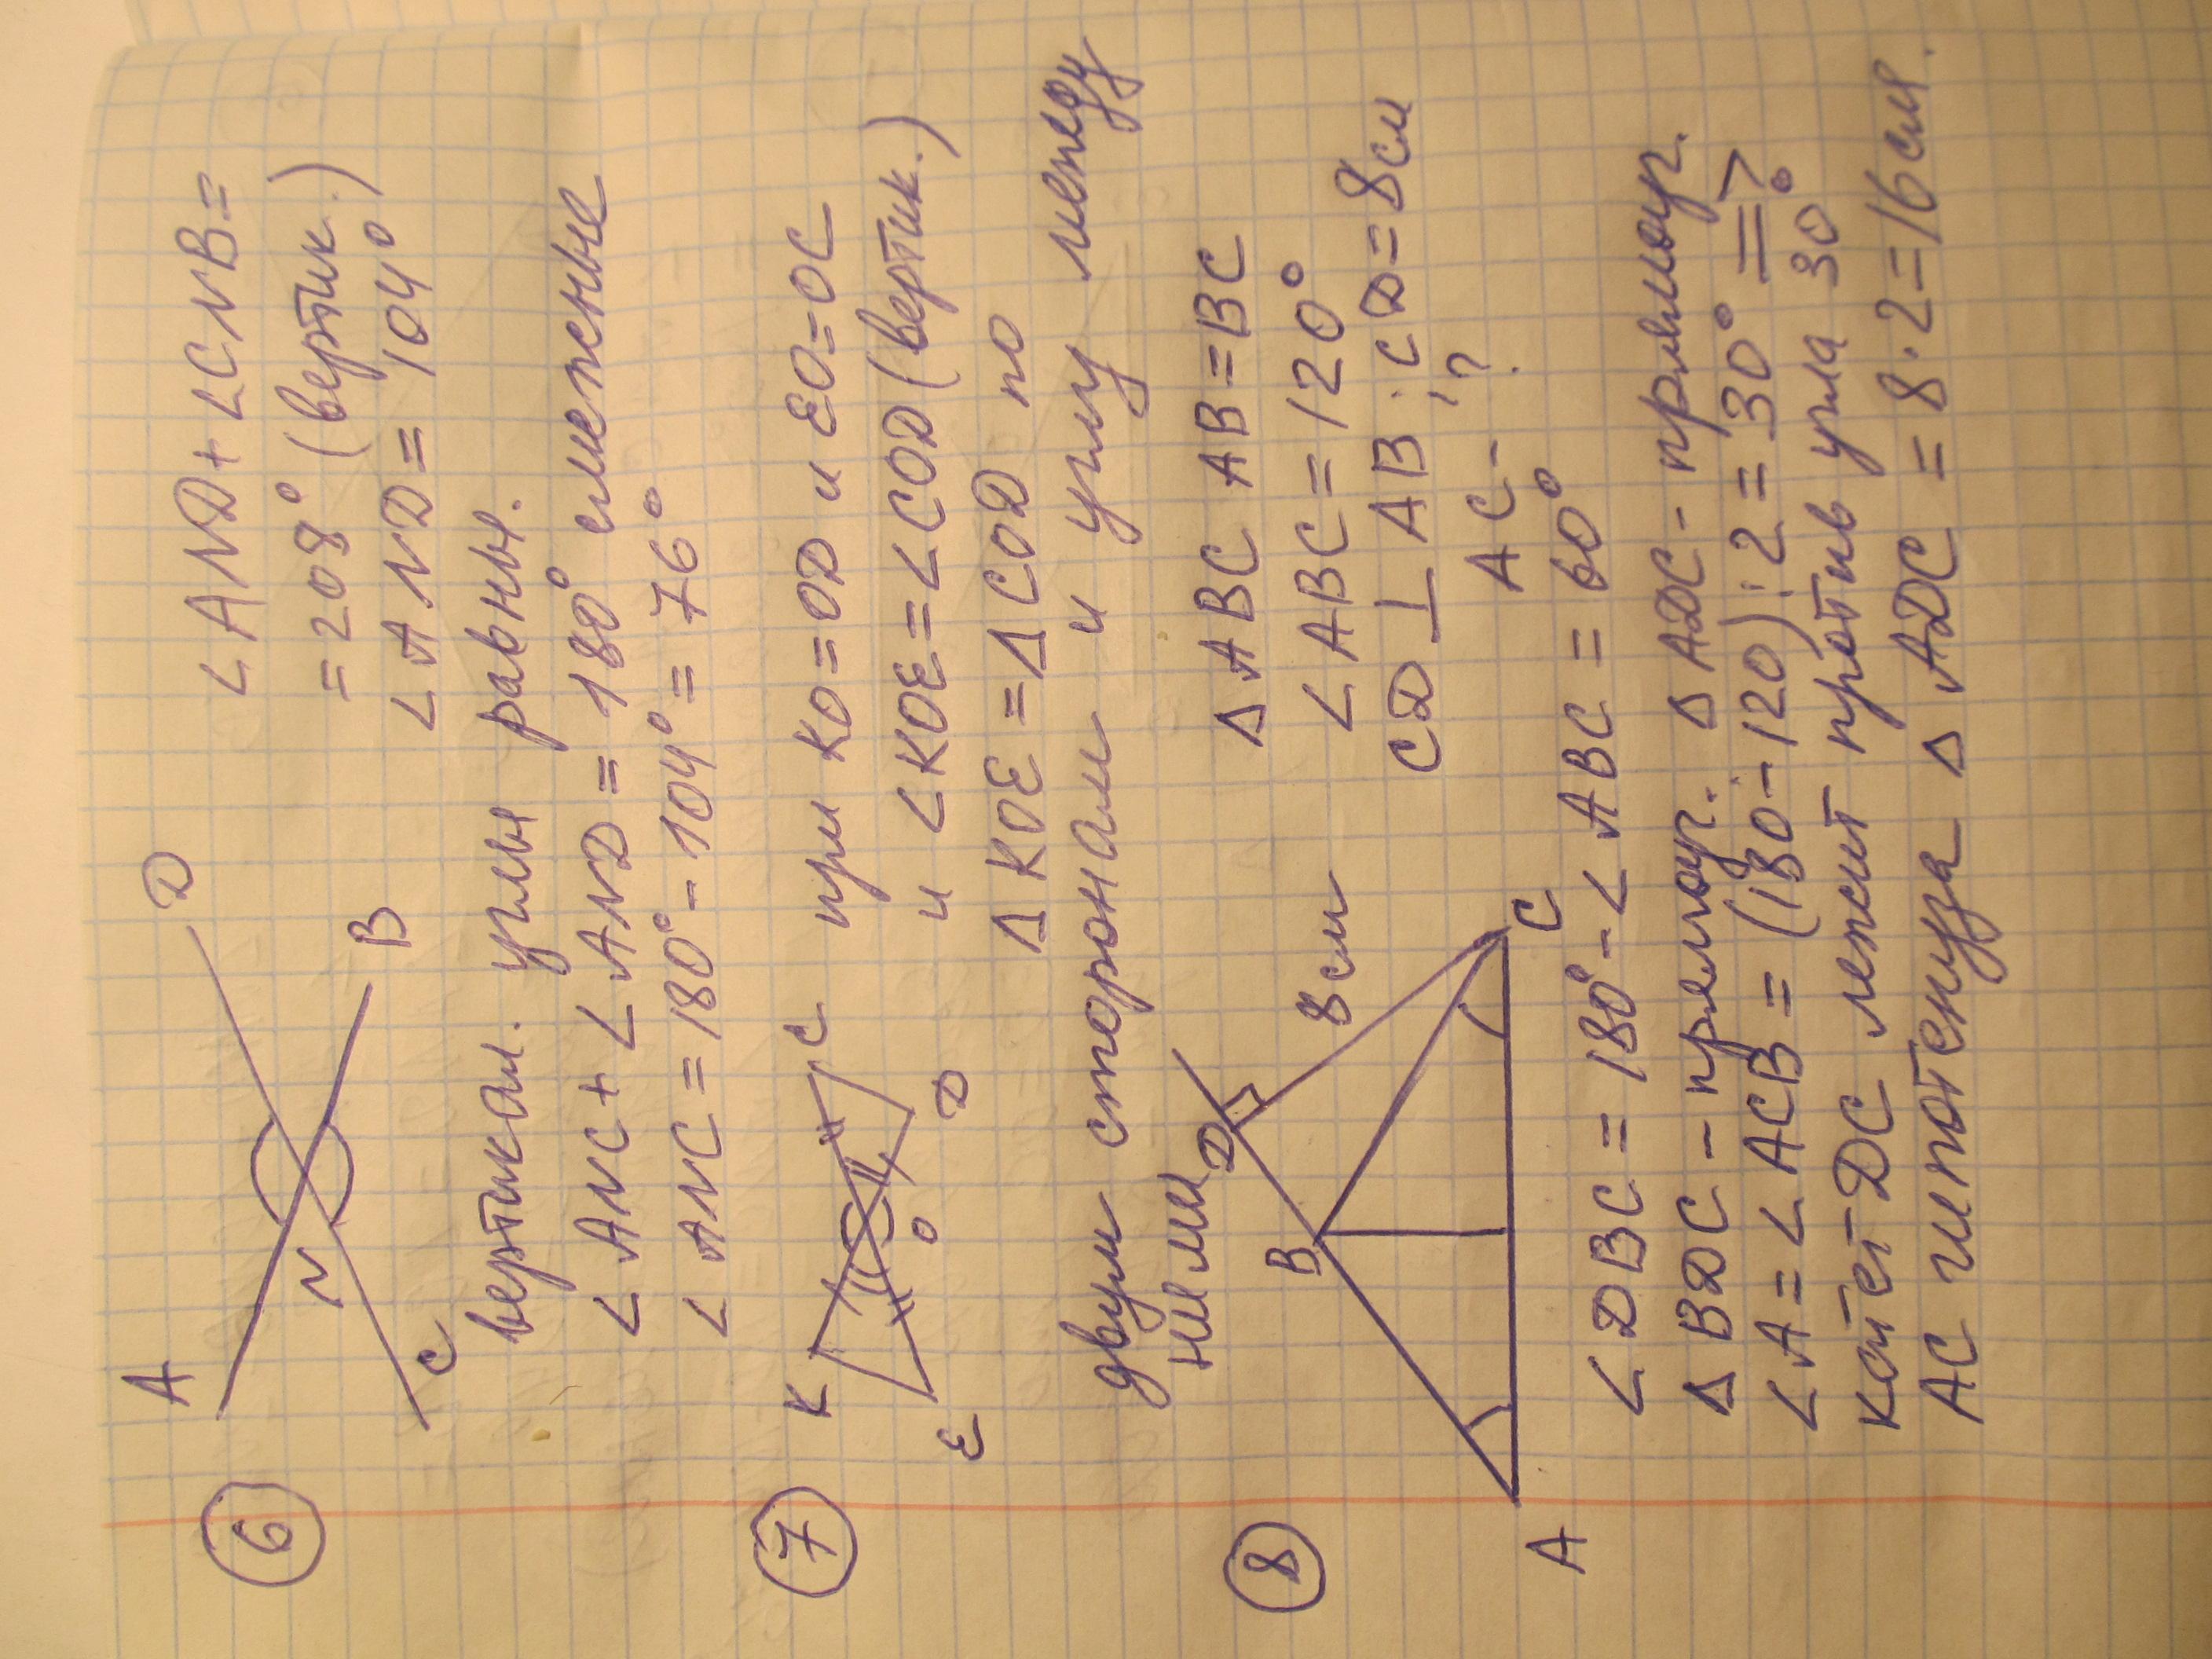 6
∠AND + ∠CNB =
= 208° (вертик.)
∠AND = 104°
A
D
N
C
B
вертикал. углы равны.
∠ANC + ∠AND = 180° смежные
∠ANC = 180° - 104° = 76°
7
K
C
E
O
D
при KO = OD и EO = OC
и ∠KOE = ∠COD (вертик.)
ΔKOE = ΔCOD по
двум сторонам и углу между
ними
8
ΔABC AB = BC
∠ABC = 120°
CD ⊥ AB; CD = 8 см
AC - ?
D
8 см
B
A
C
∠DBC = 180° - ∠ABC = 60°
ΔBDC - прямоуг. ΔADC - прямоуг.
∠A = ∠ACB = (180 - 120) : 2 = 30° =>
катет DC лежит против угла 30°
AC гипотенуза ΔADC = 8 · 2 = 16 см.